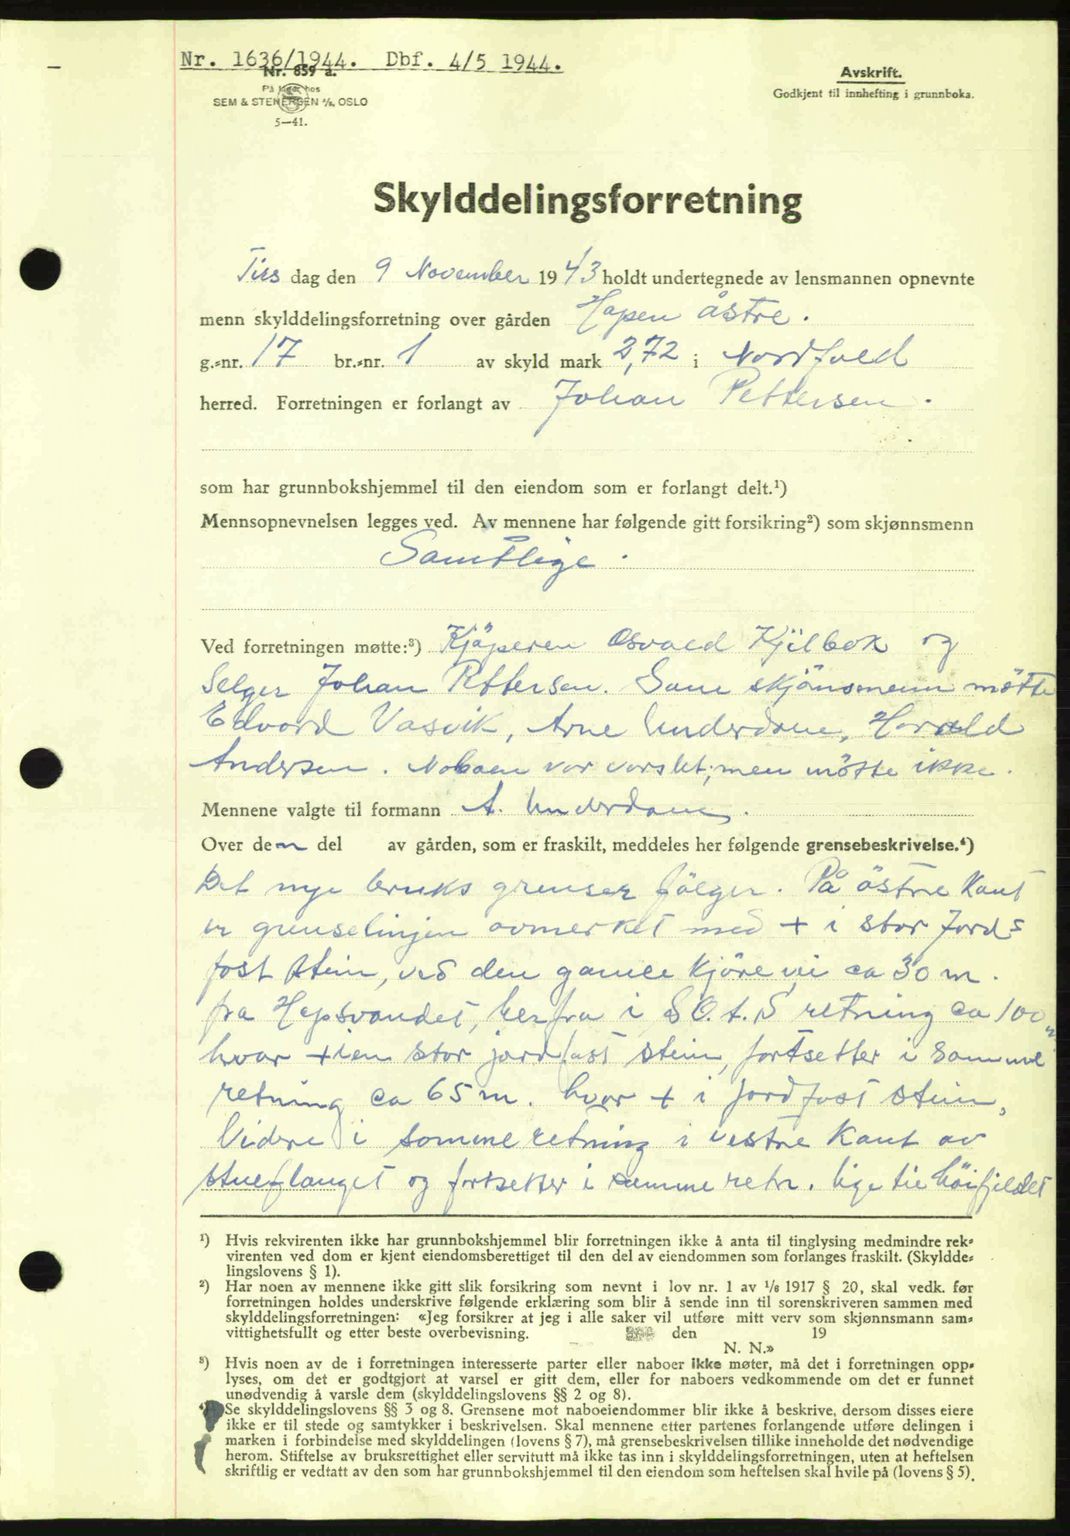 Nr. 1636/1944. Dbf. 4/5 1944.
Nr. 859 a.
På lager hos
SEM & STENERSEN A/S, OSLO
5—41.
Avskrift.
Godkjent til innhefting i grunnboka.
Skylddelingsforretning
Tirs dag den 9 November 1943 holdt undertegnede av lensmannen opnevnte
menn skylddelingsforretning over gården Hopen östre.
g.-nr. 17 br.-nr. 1 av skyld mark 2,72 i Nordfold
herred. Forretningen er forlangt av Johan Pettersen.
som har grunnbokshjemmel til den eiendom som er forlangt delt.¹)
Mennsopnevnelsen legges ved. Av mennene har følgende gitt forsikring²) som skjønnsmenn
Samtlige.
Ved forretningen møtte:³) Kjöperen Osvald Kjilbok og
Selger Johan Pettersen. Som skjönsmenn mötte
Edvard Vasvik, Arne Underdane, Harald
Andersen. Naboen var varslet, men mötte ikke.
Mennene valgte til formann A. Underdane.
Over den del av gården, som er fraskilt, meddeles her følgende grensebeskrivelse.⁴)
Det nye bruks grenser fölger. På östre kant
er grenselinjen avmerket med + i stor jords
fast stein, ved den gamle kjörevei ca 30 m.
fra Hopsvandet, herfra i S.O.t.S retning ca 100 m
hvor + i en stor jordfast stein, fortsetter i samme
retning ca 65 m. hvor + i jordfast stein,
Videre i samme retning i vestre kant av
og fortsetter i samme retn. lige til höifjeldet
¹) Hvis rekvirenten ikke har grunnbokshjemmel blir forretningen ikke å anta til tinglysing medmindre rek-
virenten ved dom er kjent eiendomsberettiget til den del av eiendommen som forlanges fraskilt. (Skyldde-
lingslovens § 1).
²) Har noen av mennene ikke gitt slik forsikring som nevnt i lov nr. 1 av 1/6 1917 § 20, skal vedk. før
forretningen holdes underskrive følgende erklæring som blir å sende inn til sorenskriveren sammen med
skylddelingsforretningen: «Jeg forsikrer at jeg i alle saker vil utføre mitt verv som skjønnsmann sam-
vittighetsfullt og etter beste overbevisning. den 19
N. N.»
³) Hvis noen av de i forretningen interesserte parter eller naboer ikke møter, må det i forretningen opp-
lyses, om det er godtgjort at varsel er gitt dem, eller for naboers vedkommende om det er funnet
unødvendig å varsle dem (skylddelingslovens §§ 2 og 8).
⁴) Se skylddelingslovens §§ 3 og 8. Grensene mot naboeiendommer blir ikke å beskrive, dersom disses eiere
ikke er til stede og samtykker i beskrivelsen. Skal mennene etter partenes forlangende utføre delingen i
marken i forbindelse med skylddelingen (lovens § 7), må grensebeskrivelsen tillike inneholde det nødvendige
herom. Stiftelse av bruksrettighet eller servitutt må ikke tas inn i skylddelingsforretningen, uten at heftelsen
skriftlig er vedtatt av den som har grunnbokshjemmel til den eiendom som heftelsen skal hvile på (lovens § 5).